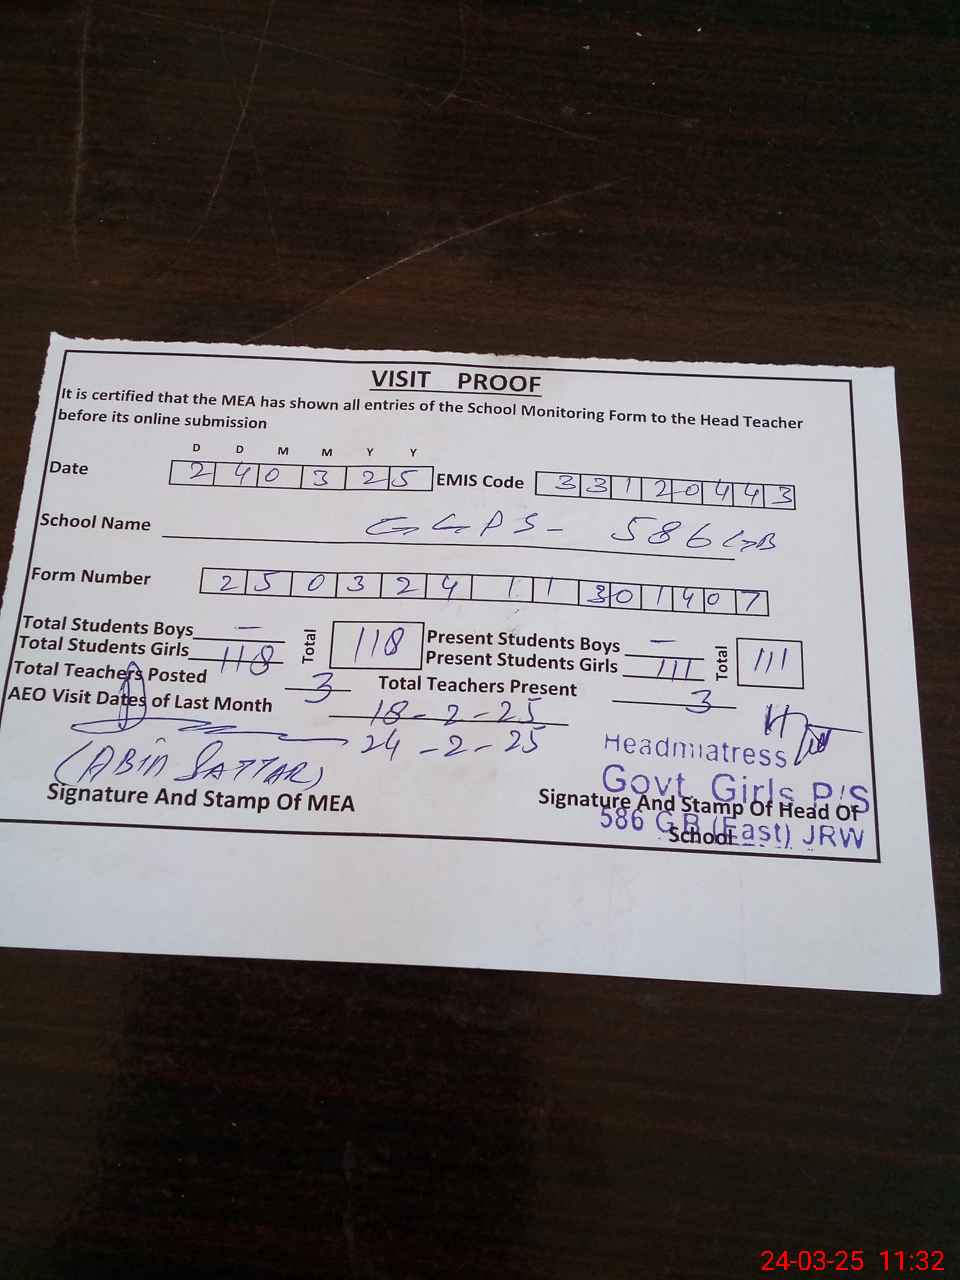 VISIT PROOF
It is certified that the MEA has shown all entries of the School Monitoring Form to the Head Teacher
before its online submission
D D M M Y Y
Date 2 4 0 3 2 5 EMIS Code 3 3 1 2 0 4 4 3
School Name GGPS- 586 GB
Form Number 2 5 0 3 2 4 1 1 3 0 1 4 0 7
Total Students Boys - Total 118 Present Students Boys - Total 111
Total Students Girls 118 Present Students Girls 111
Total Teachers Posted 3 Total Teachers Present 3
AEO Visit Dates of Last Month 18-2-25
24-2-25
(ABID SATTAR)
Signature And Stamp Of MEA
Headmiatress
Govt. Girls P/S
Signature And Stamp Of Head Of
586 G.B (East) JRW
School
24-03-25 11:32